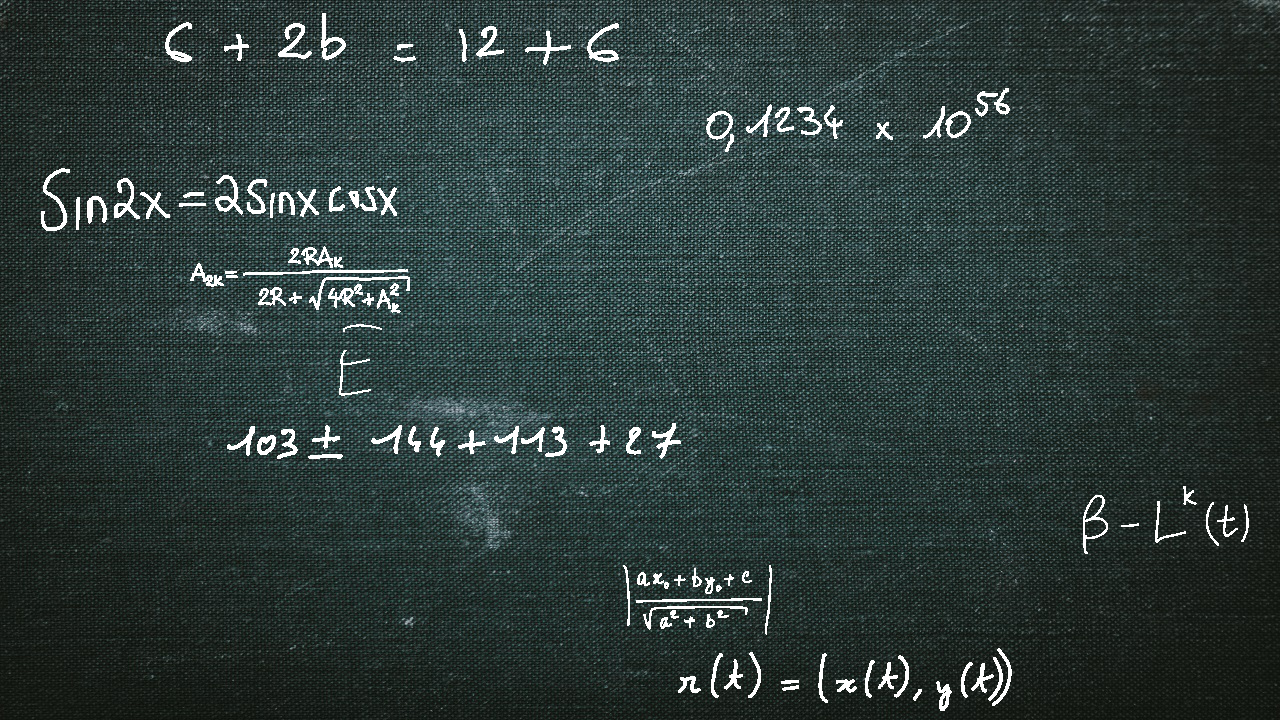 6 + 2b = 12 + 6
0,1234 x 10^56
Sin2x = 2Sinx cosx
A_{2k} = \frac{2RA_k}{2R + \sqrt{4R^2 + A_k^2}}
\overline{E}
103 ± 144 + 113 + 27
β - L^k(t)
\left|\frac{ax_0 + by_0 + c}{\sqrt{a^2 + b^2}}\right|
r(t) = (x(t), y(t))